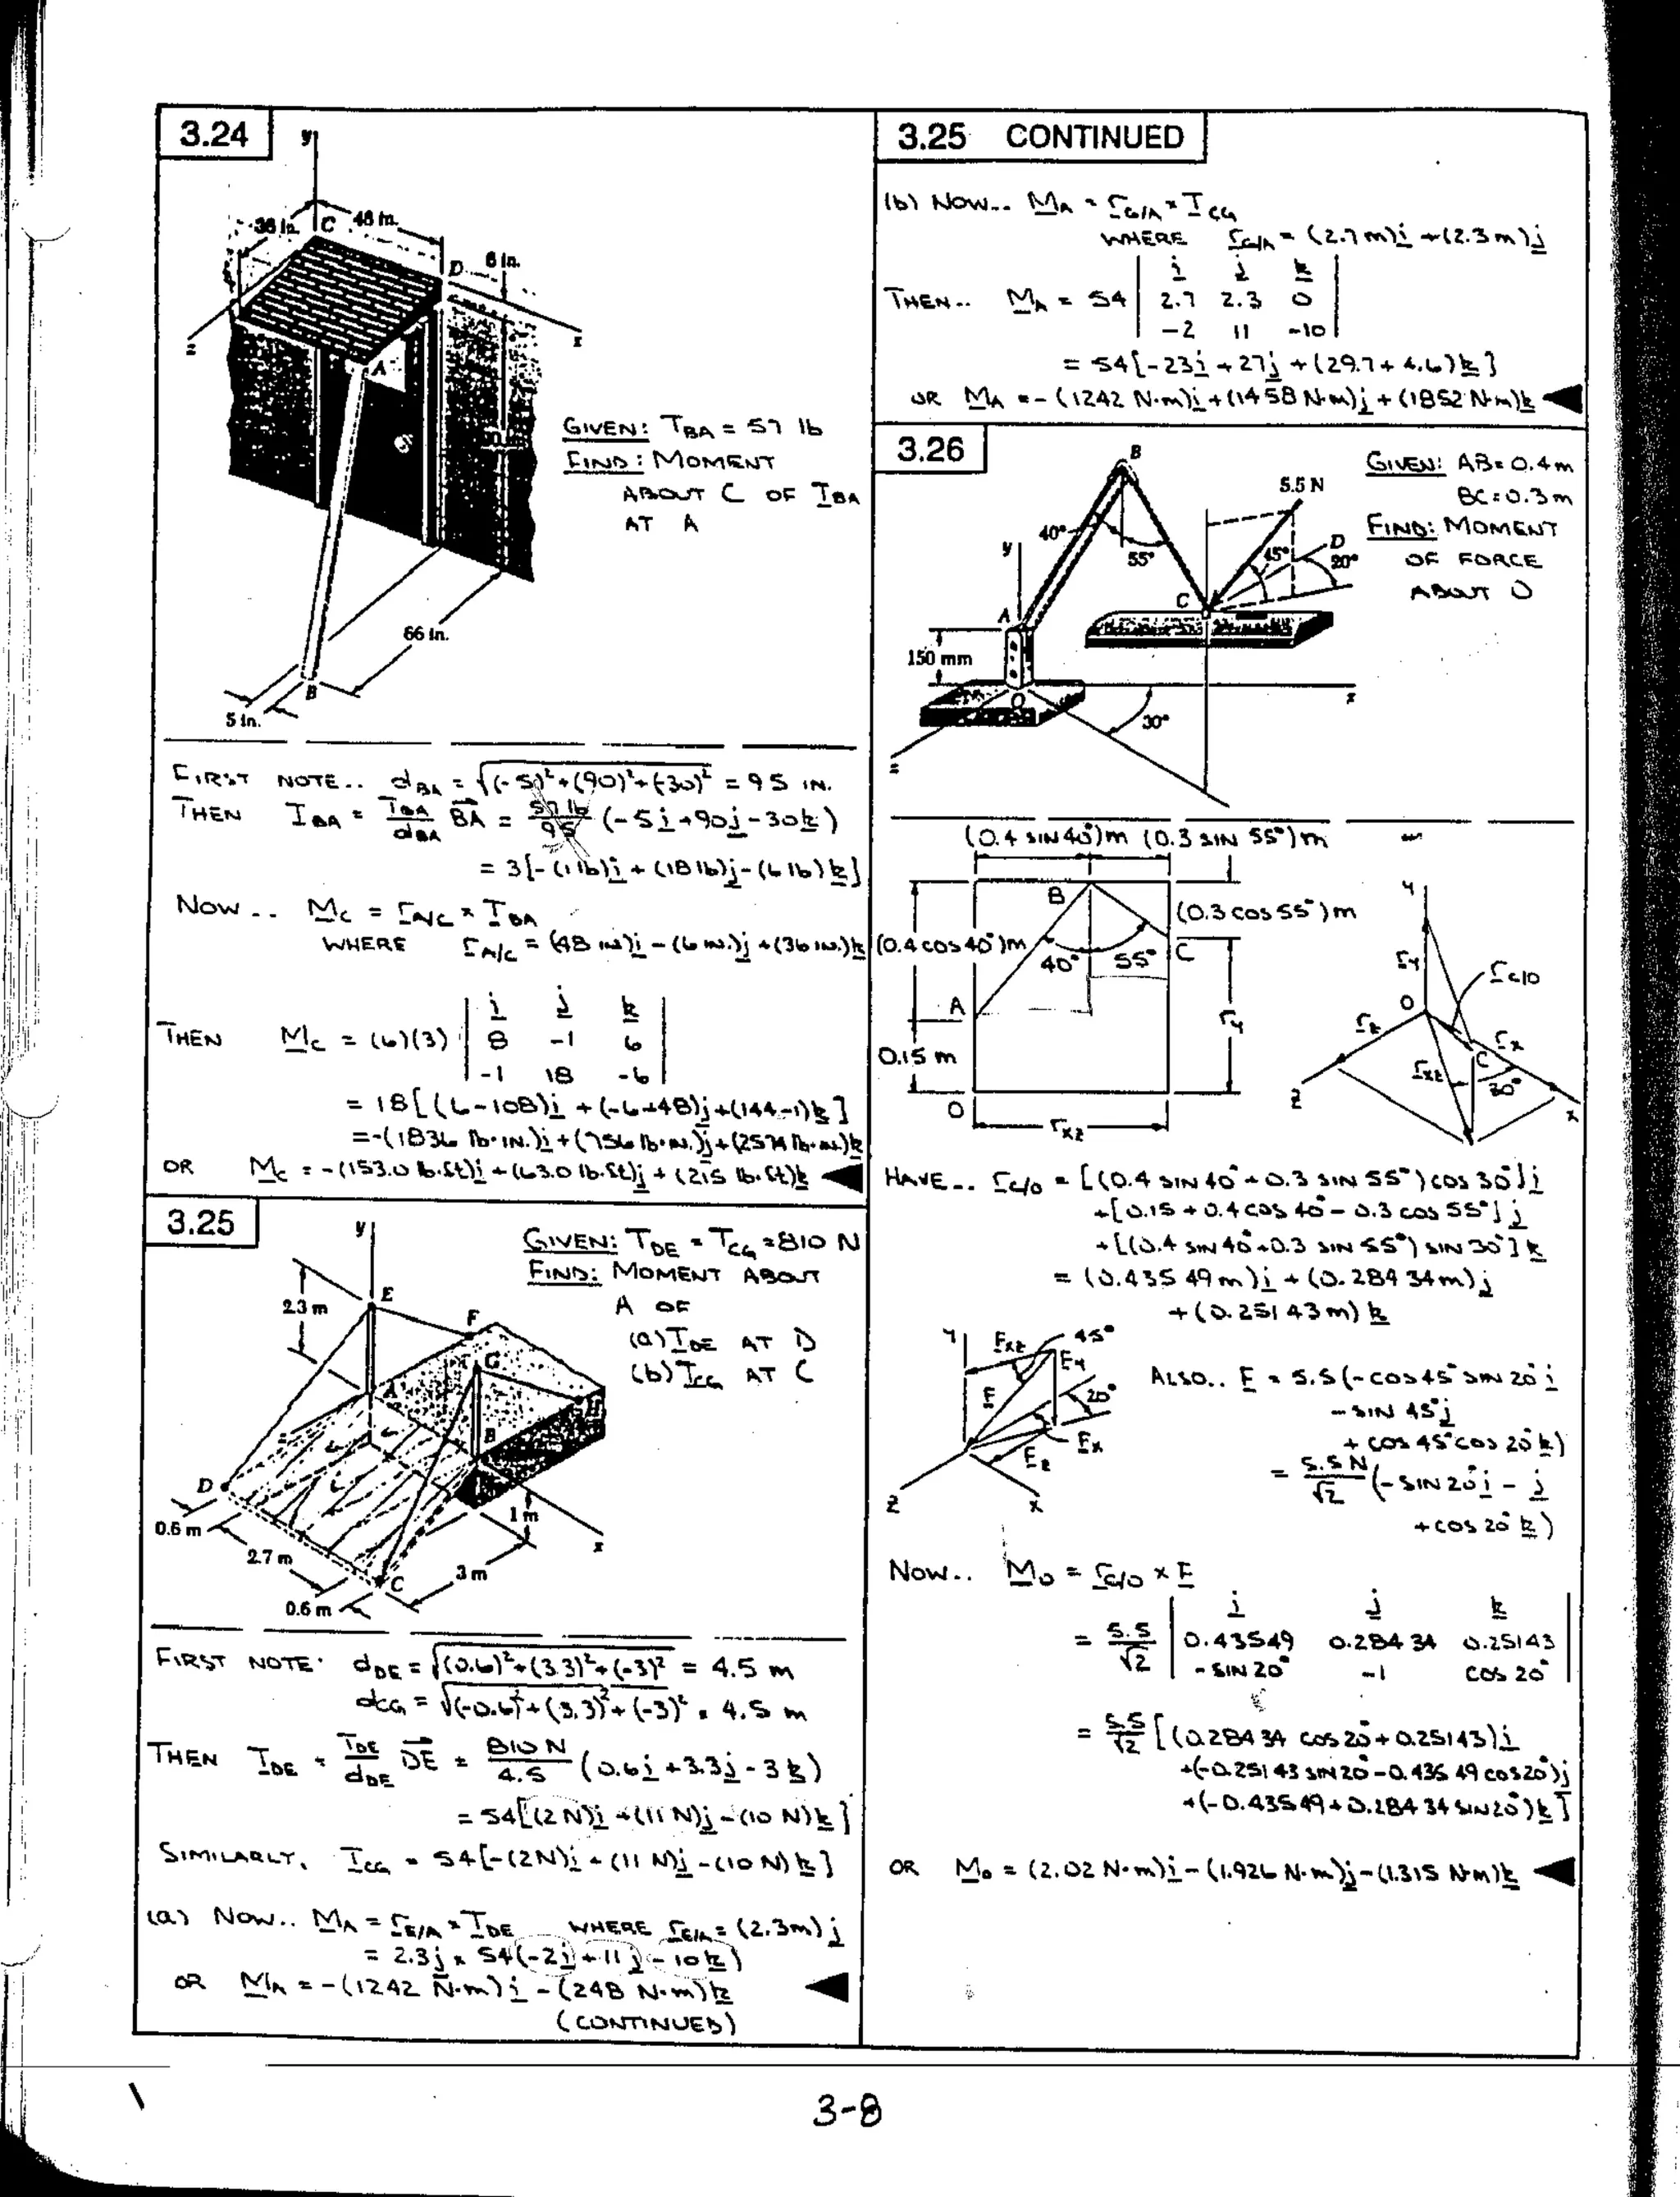 3.24
y
36 in.
C
48 in.
D
6 in.
x
z
A
90 in.
66 in.
B
5 in.
GIVEN: T_BA = 57 lb
FIND: MOMENT
ABOUT C OF T_BA
AT A
FIRST NOTE.. d_BA = √(-5)²+(90)²+(-30)² = 95 IN.
THEN T_BA = T_BA/d_BA BA = 57 lb/95 (-5i+90j-30k)
= 3[-(1 lb)i + (18 lb)j-(6 lb)k]
NOW.. M_C = r_A/C × T_BA
WHERE r_A/C = (48 IN.)i - (6 IN.)j + (36 IN.)k
THEN M_C = (6)(3) | i j k
8 -1 6
-1 18 -6 |
= 18[(6-108)i + (-6+48)j+(144-1)k]
=-(1836 lb·IN.)i+(756 lb·IN.)j+(2574 lb·IN.)k
OR M_C = -(153.0 lb·ft)i+(63.0 lb·ft)j + (215 lb·ft)k
3.25
GIVEN: T_DE = T_CG = 810 N
FIND: MOMENT ABOUT
A OF
(a) T_DE AT D
(b) T_CG AT C
y
E
2.3 m
F
G
A
H
B
D
0.6 m
1 m
2.7 m
x
C
3 m
0.6 m
FIRST NOTE: d_DE = √(0.6)²+(3.3)²+(-3)² = 4.5 m
d_CG = √(-0.6)²+(3.3)²+(-3)² = 4.5 m
THEN T_DE = T_DE/d_DE DE = 810 N/4.5 (0.6i+3.3j-3k)
= 54[(2 N)i +(11 N)j-(10 N)k]
SIMILARLY, T_CG = 54[-(2N)i + (11 N)j -(10 N)k]
(a) NOW.. M_A = r_E/A × T_DE WHERE r_E/A = (2.3m)j
= 2.3j × 54(-2i+11j-10k)
OR M_A = -(1242 N·m)i - (248 N·m)k
(CONTINUED)
3.25 CONTINUED
(b) NOW.. M_A = r_G/A × T_CG
WHERE r_G/A = (2.7m)i+(2.3m)j
THEN.. M_A = 54 | i j k
2.7 2.3 0
-2 11 -10 |
= 54[-23i+27j+(29.7+4.6)k]
OR M_A = -(1242 N·m)i+(1458 N·m)j+(1852 N·m)k
3.26
GIVEN: AB = 0.4m
BC = 0.3m
FIND: MOMENT
OF FORCE
ABOUT O
B
5.5 N
40°
y
55°
45°
D
20°
A
C
150 mm
O
30°
x
z
(0.4 SIN 40°)m (0.3 SIN 55°)m
B
(0.3 cos 55°)m
(0.4 cos 40°)m
40° 55° C
A
r_y
0.15 m
O
r_xz
y
r_y
r_C/O
O
r_z
r_x
C
r_xz
30°
z
x
HAVE.. r_C/O = [(0.4 SIN 40°+0.3 SIN 55°) cos 30°]i
+[0.15 + 0.4 cos 40° - 0.3 cos 55°]j
+[(0.4 SIN 40°+0.3 SIN 55°) SIN 30°]k
= (0.435 49 m)i + (0.284 34 m)j
+ (0.251 43 m)k
y F_xz 45°
F_y
F
20°
F_x
F_z
z x
ALSO.. F = 5.5(-cos 45° SIN 20° i
- SIN 45° j
+ cos 45° cos 20° k)
= 5.5 N/√2 (-SIN 20° i - j
+cos 20° k)
NOW.. M_O = r_C/O × F
= 5.5/√2 | i j k
0.43549 0.284 34 0.25143
-SIN 20° -1 cos 20° |
= 5.5/√2 [(0.284 34 cos 20°+0.25143)i
+(-0.251 43 SIN 20°-0.435 49 cos 20°)j
+(-0.435 49+0.284 34 SIN 20°)k]
OR M_O = (2.02 N·m)i-(1.926 N·m)j-(1.315 N·m)k
3-8